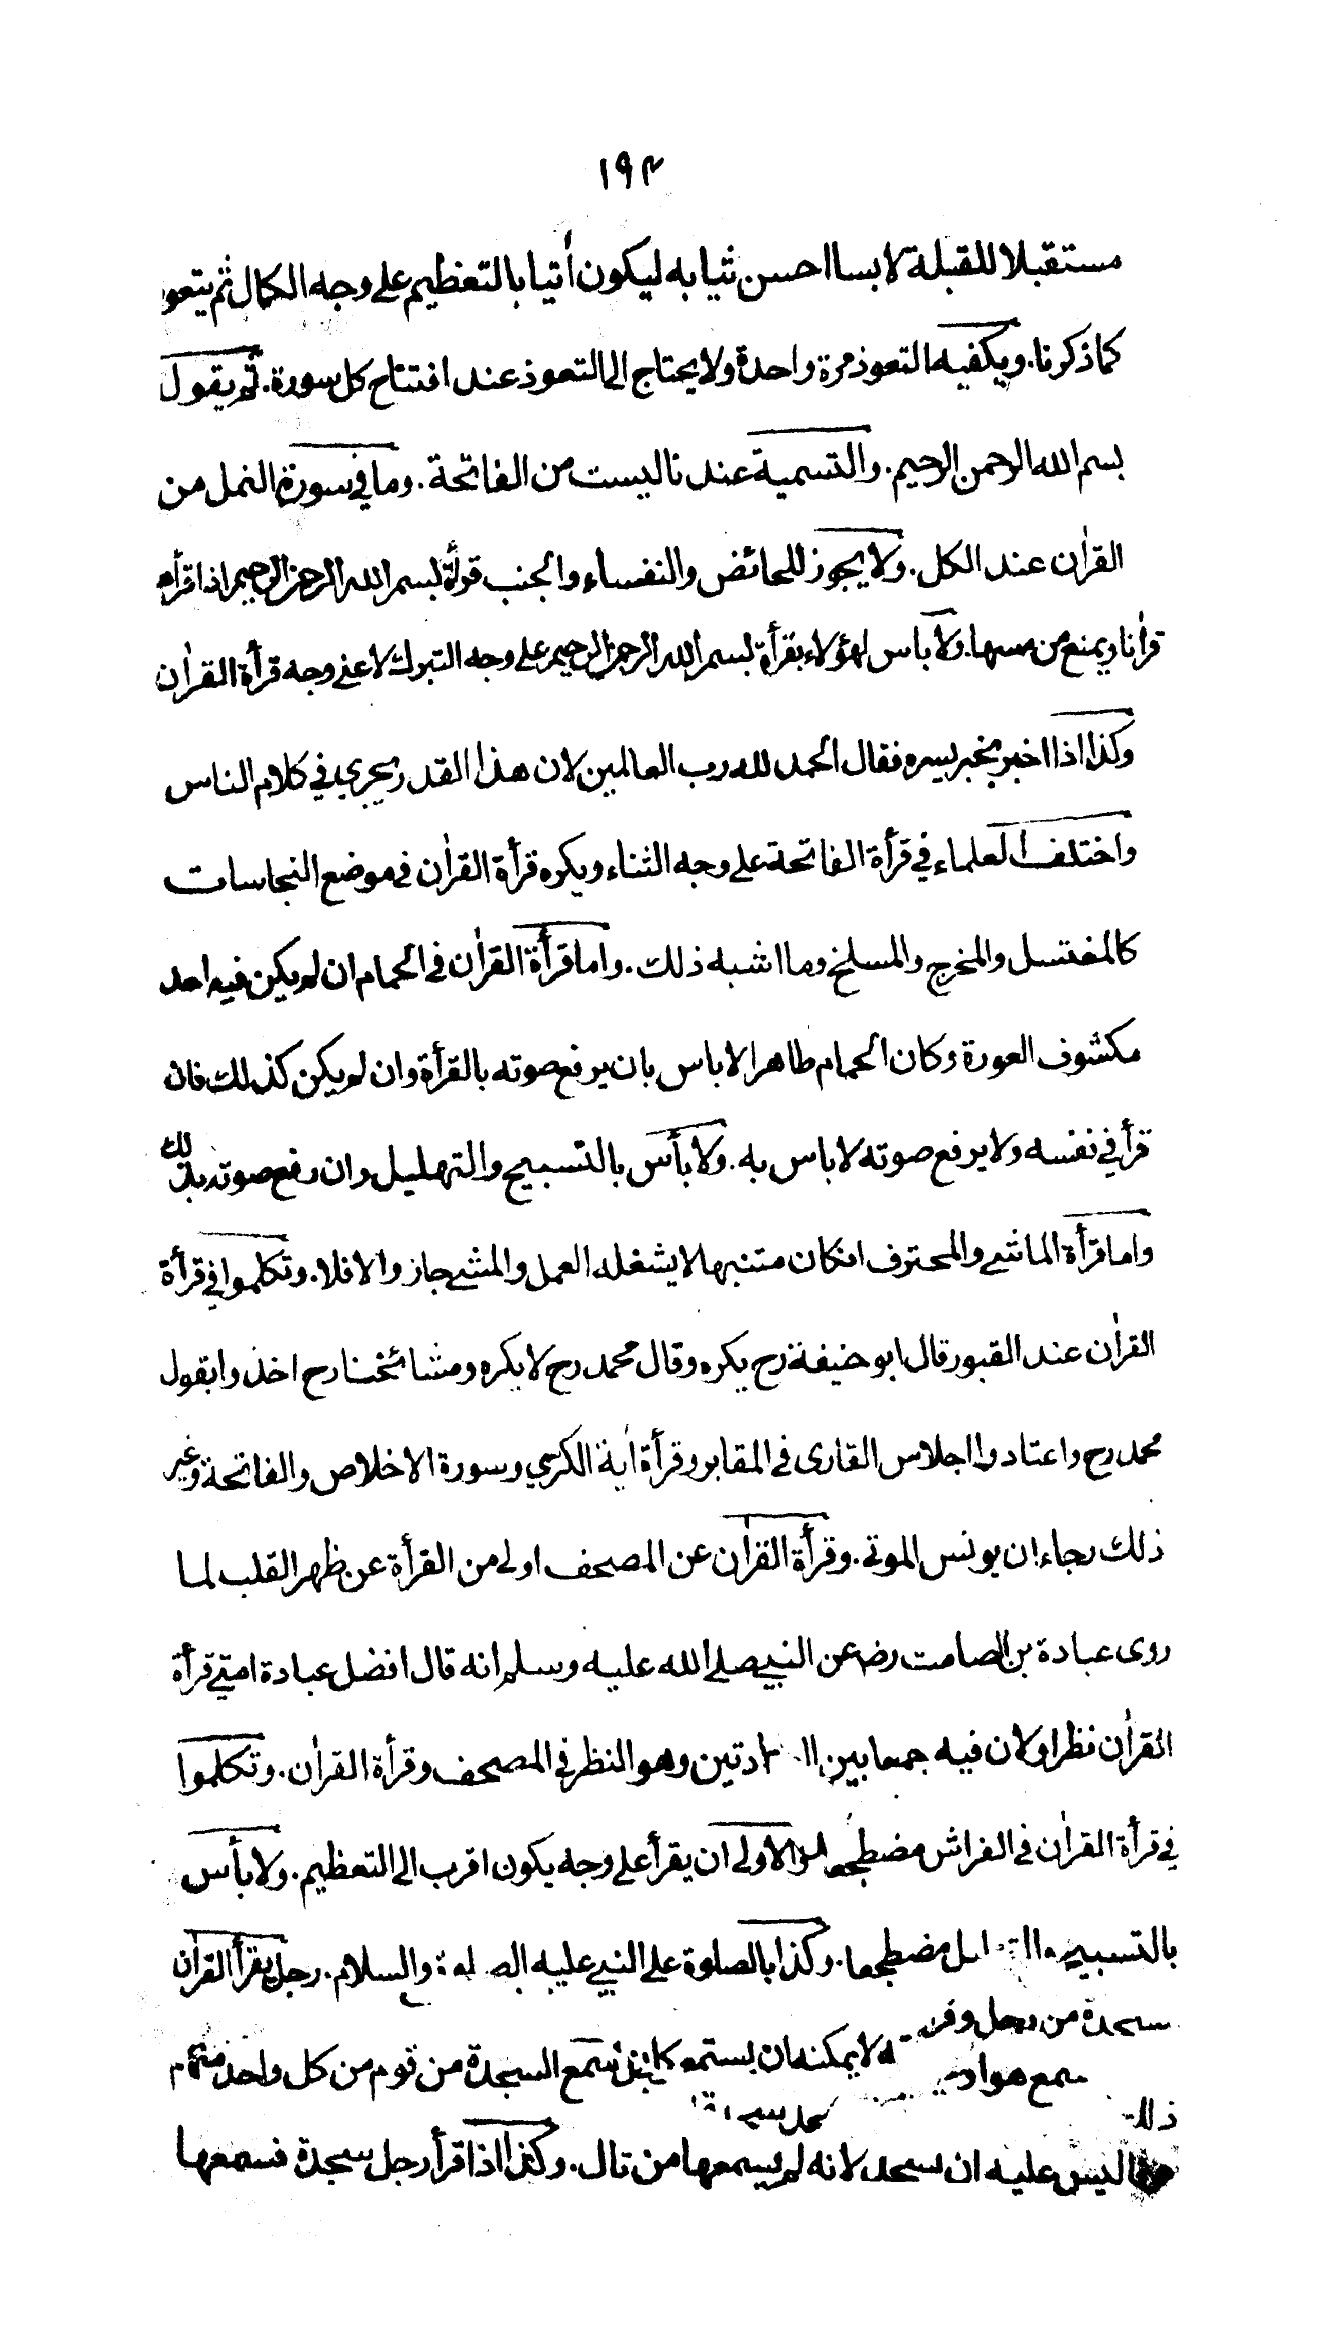 ١٩٤
مستقبلا للقبلة لابسا احسن ثيابه ليكون أتيا بالتعظيم على وجه الكمال ثم يتعو
كما ذكرنا. ويكفيه التعوذ مرة واحدة ولا يحتاج الى التعوذ عند افتتاح كل سورة. ثم يقول
بسم الله الرحمن الرحيم. والتسمية عندنا ليست من الفاتحة. وما في سورة النمل من
القرأن عند الكل. ولا يجوز للحائض والنفساء والجنب قرأة بسم الله الرحمن الرحيم اذا قرأه
قرأنا ويمنع من مسها. ولا باس لهؤلاء بقرأة بسم الله الرحمن الرحيم على وجه التبرك لا على وجه قرأة القرأن
وكذا اذا اخبر بخبر يسره فقال الحمد لله رب العالمين لان هذا القدر يجري في كلام الناس
واختلف العلماء في قرأة الفاتحة على وجه الثناء ويكره قرأة القرأن في موضع النجاسات
كالمغتسل والمخرج والمسلخ وما اشبه ذلك. واما قرأة القرأن في الحمام ان لم يكن فيه احد
مكشوف العورة وكان الحمام طاهرا لا باس بان يرفع صوته بالقرأة وان لم يكن كذلك فان
قرأ في نفسه ولا يرفع صوته لا باس به. ولا بأس بالتسبيح والتهليل وان رفع صوته بذلك
واما قرأة الماشي والمحترف انكان متنبها لا يشغله العمل والمشي جاز والا فلا. وتكلموا في قرأة
القرأن عند القبور قال ابو حنيفة رح يكره وقال محمد رح لا يكره ومشائخنا رح اخذوا بقول
محمد رح واعتادوا اجلاس القارى في المقابر وقرأة أية الكرسي وسورة الاخلاص والفاتحة وغير
ذلك رجاء ان يونس الموتى. وقرأة القرأن عن المصحف اولى من القرأة عن ظهر القلب لما
روى عبادة بن الصامت رض عن النبي صلى الله عليه وسلم انه قال افضل عبادة امتي قرأة
القرأن نظرا ولان فيه جمعا بين ادتين وهو النظر في المصحف وقرأة القرأن. وتكلموا
في قرأة القرأن في الفراش مضطجعا والاولى ان يقرأ على وجه يكون اقرب الى التعظيم. ولا بأس
بالتسبيح مضطجعا. وكذا بالصلوة على النبي عليه والسلام. رجل يقرأ القرأن
سجدة من رجل
سمع هوا لا يمكنه ان يستمع سمع السجدة من قوم من كل واحد منهم
ذلك
ليس عليه ان يسجد لانه لم يسمعها من تال. وكذا اذا قرأ رجل سجدة فسمعها